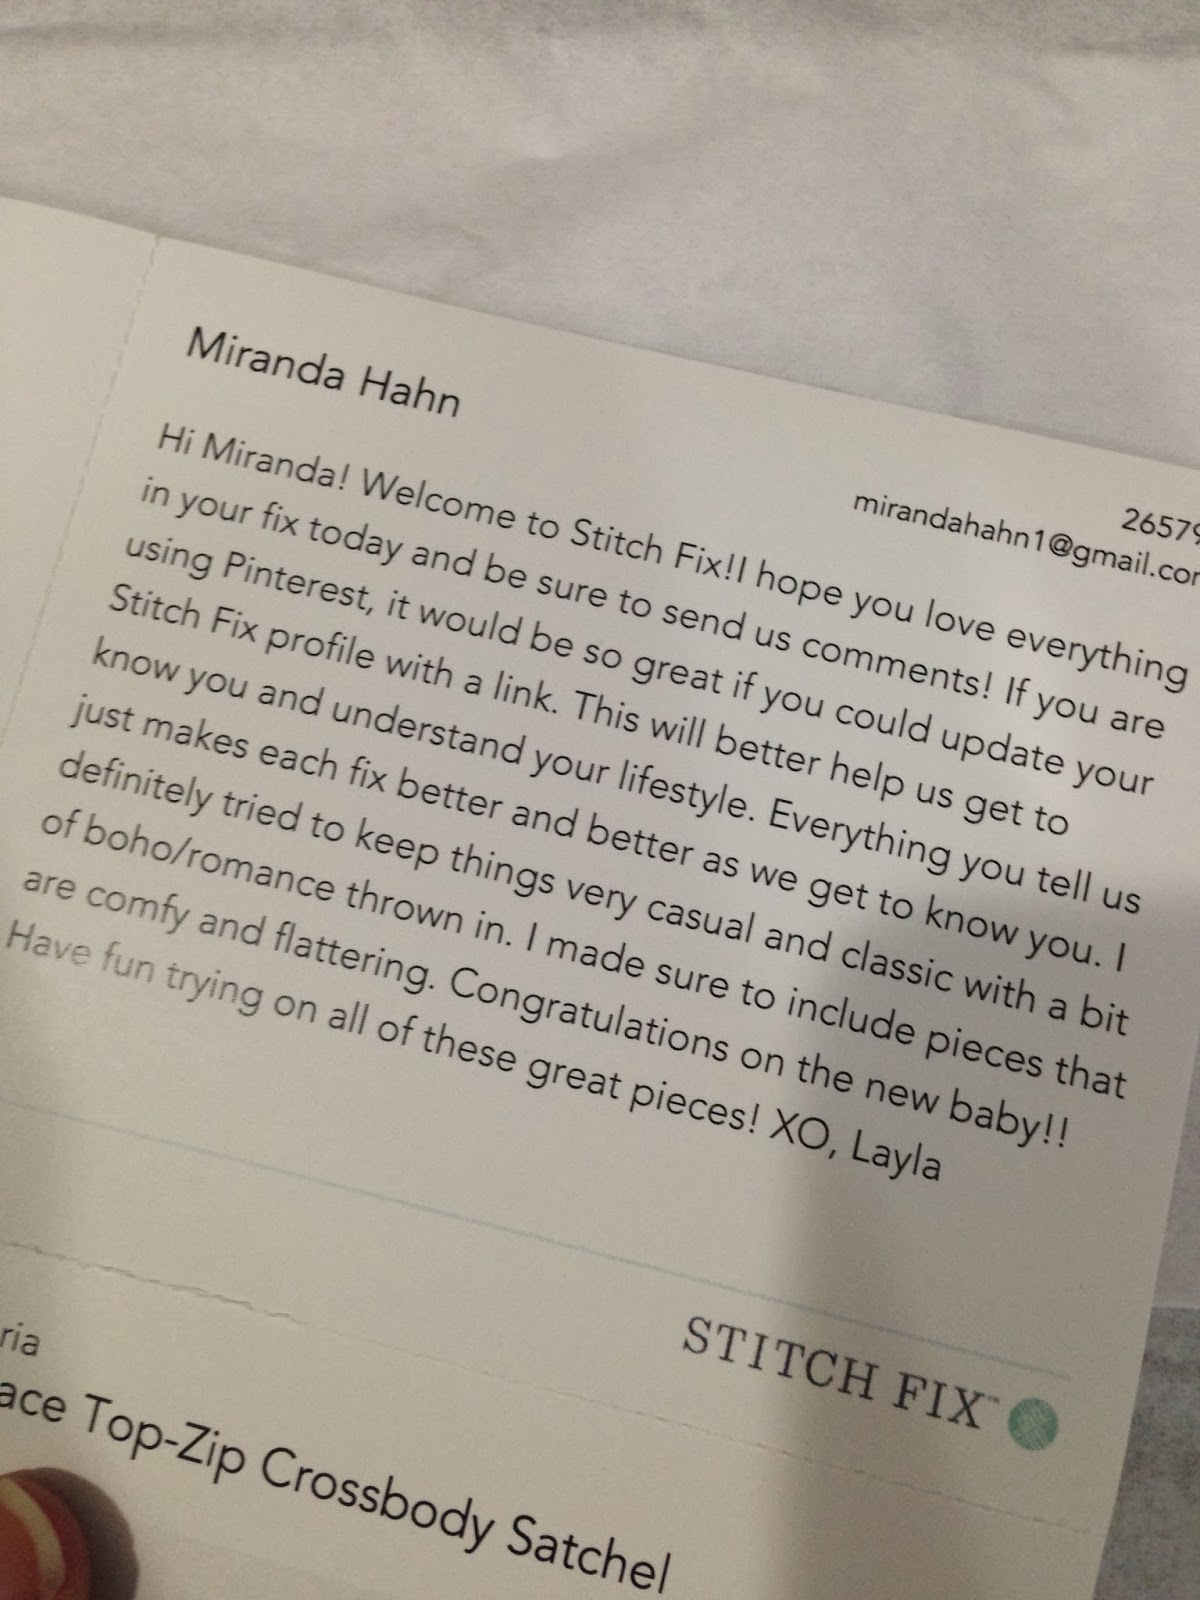 Miranda Hahn
26579
mirandahahn1@gmail.com
Hi Miranda! Welcome to Stitch Fix!I hope you love everything
in your fix today and be sure to send us comments! If you are
using Pinterest, it would be so great if you could update your
Stitch Fix profile with a link. This will better help us get to
know you and understand your lifestyle. Everything you tell us
just makes each fix better and better as we get to know you. I
definitely tried to keep things very casual and classic with a bit
of boho/romance thrown in. I made sure to include pieces that
are comfy and flattering. Congratulations on the new baby!!
Have fun trying on all of these great pieces! XO, Layla
STITCH FIX™
ria
ace Top-Zip Crossbody Satchel